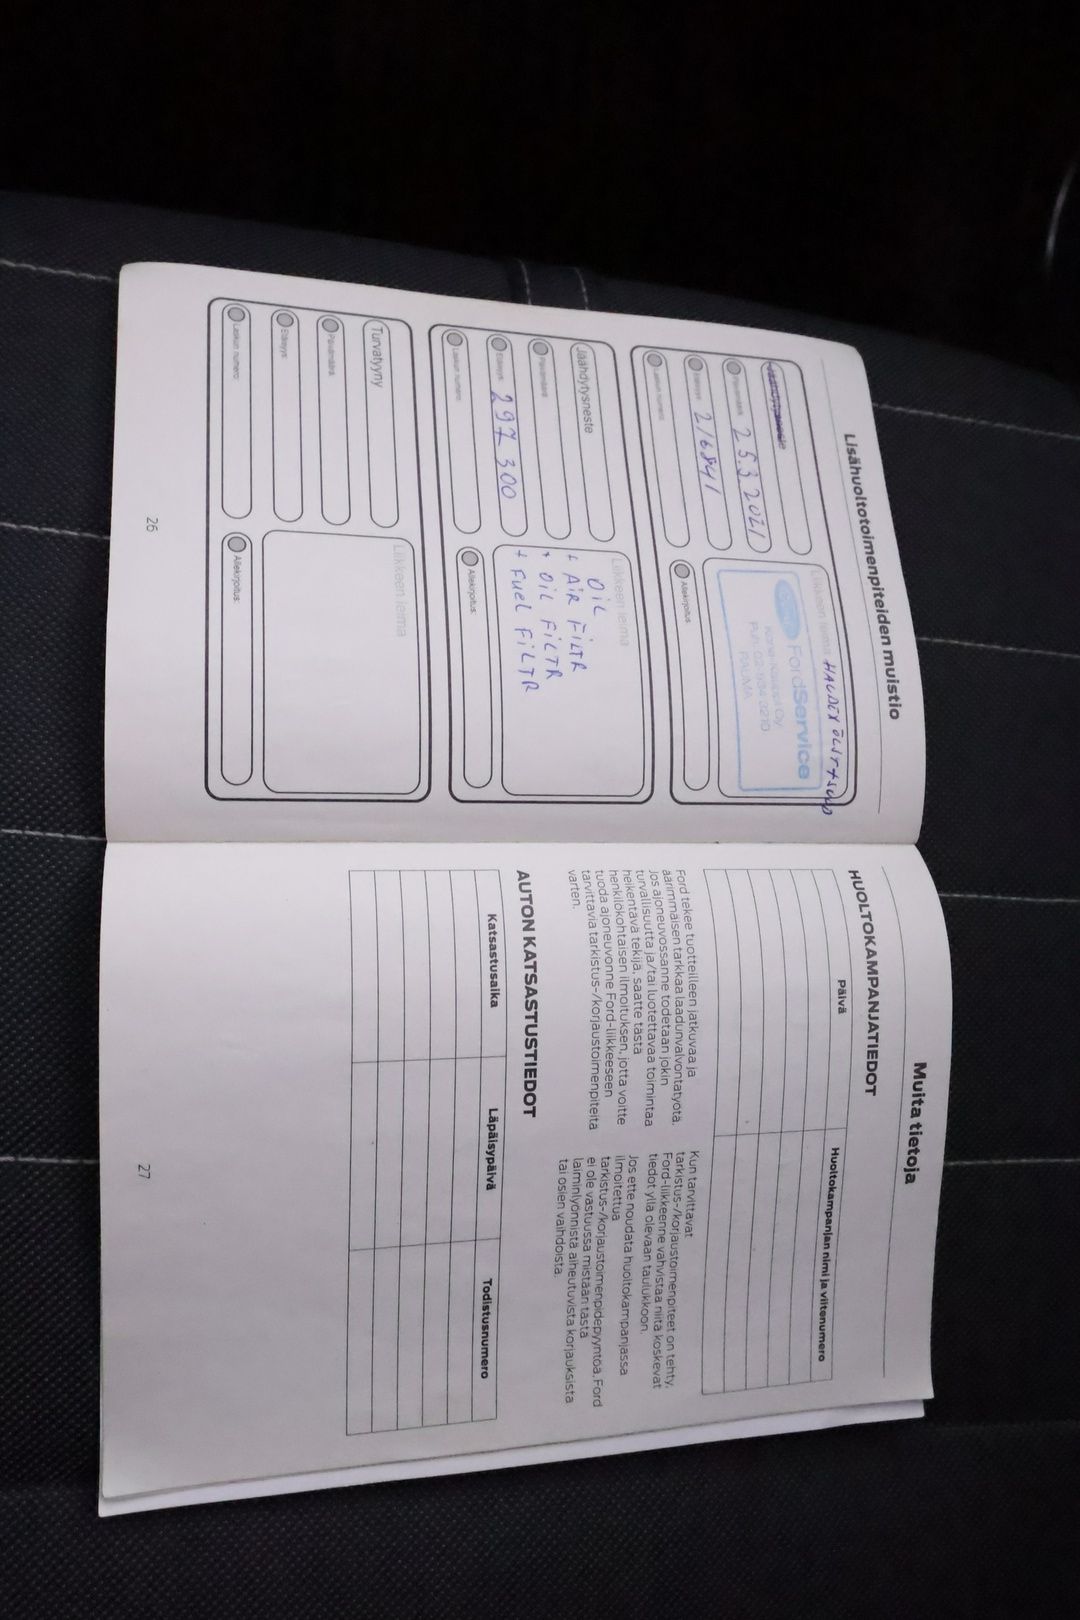 Lisähuoltotoimenpiteiden muistio
Jäähdytysneste
Päivämäärä: 25.3.2021
Etäisyys: 216841
Laskun numero:
Liikkeen leima
FordService
Puh. 02-834 3210
RAUMA
Allekirjoitus:
Jäähdytysneste
Päivämäärä:
Etäisyys: 297 300
Laskun numero:
Liikkeen leima
OiL
+ AiR FiLTR
+ OiL FiLTR
+ FueL FiLTR
Allekirjoitus:
Turvatyyny
Päivämäärä:
Etäisyys:
Laskun numero:
Liikkeen leima
Allekirjoitus:
26
Muita tietoja
HUOLTOKAMPANJATIEDOT
Päivä Huoltokampanjan nimi ja viitenumero
Ford tekee tuotteilleen jatkuvaa ja
äärimmäisen tarkkaa laadunvalvontatyötä.
Jos ajoneuvossanne todetaan jokin
turvallisuutta ja/tai luotettavaa toimintaa
heikentävä tekijä, saatte tästä
henkilökohtaisen ilmoituksen, jotta voitte
tuoda ajoneuvonne Ford-liikkeeseen
tarvittavia tarkistus-/korjaustoimenpiteitä
varten.
Kun tarvittavat
tarkistus-/korjaustoimenpiteet on tehty,
Ford-liikkeenne vahvistaa niitä koskevat
tiedot yllä olevaan taulukkoon.
Jos ette noudata huoltokampanjassa
ilmoitettua
tarkistus-/korjaustoimenpidepyyntöä, Ford
ei ole vastuussa mistään tästä
laiminlyönnistä aiheutuvista korjauksista
tai osien vaihdoista.
AUTON KATSASTUSTIEDOT
Katsastusaika Läpäisypäivä Todistusnumero
27